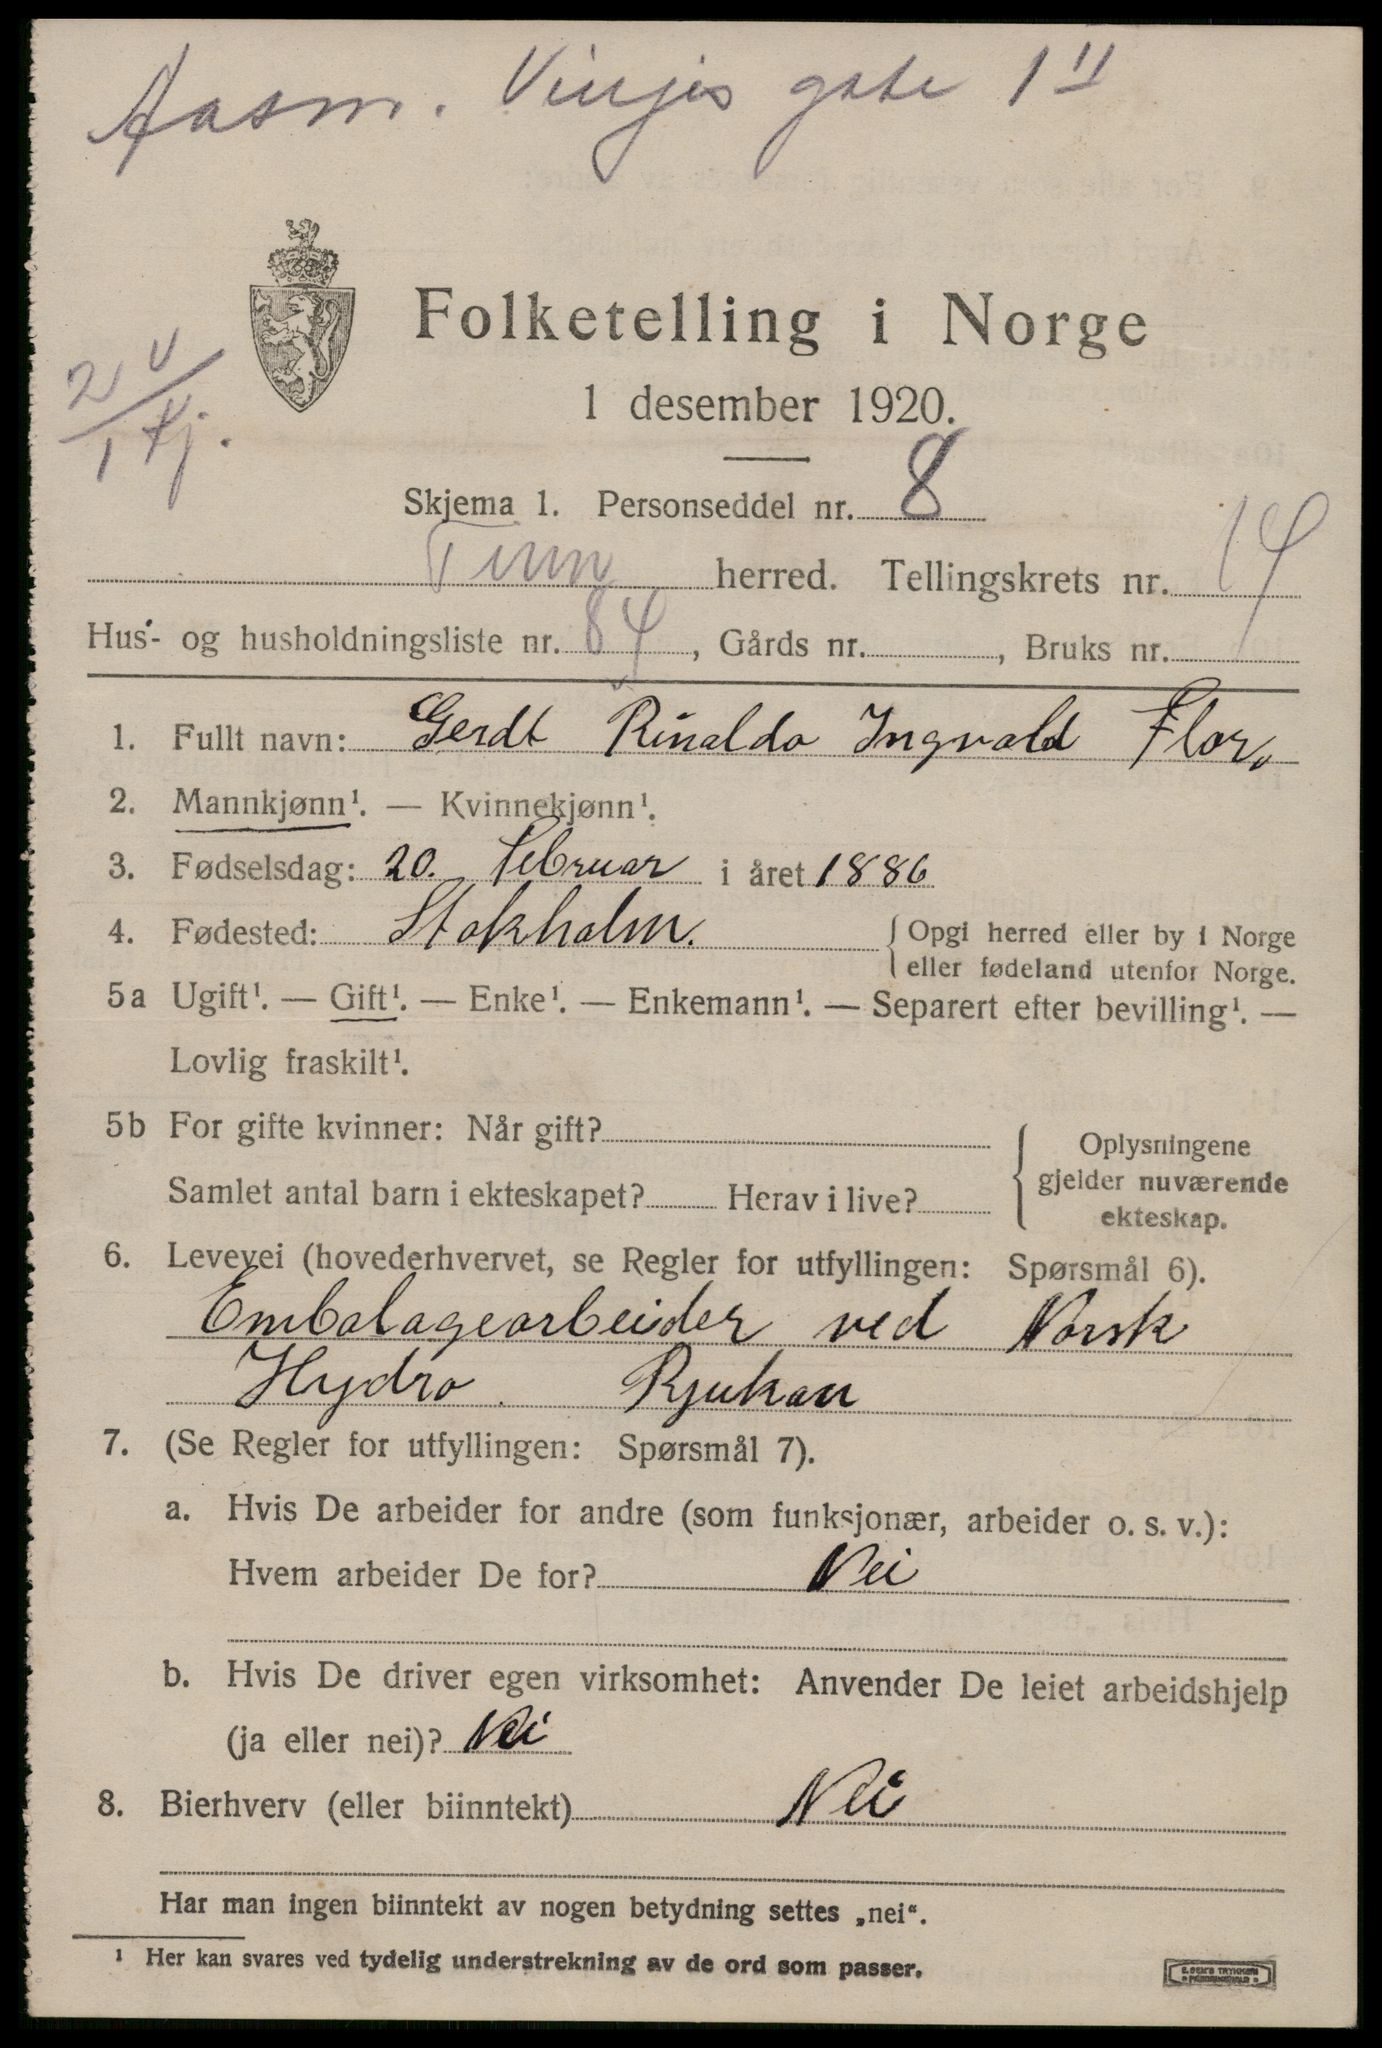 Aasm. Vinjes gate 1 II
Folketelling i Norge
1 desember 1920.
2 v
1 kj.
Skjema 1. Personseddel nr. 8
Tinn herred. Tellingskrets nr. 14
Hus- og husholdningsliste nr. 84, Gårds nr. , Bruks nr.
1. Fullt navn: Gerdt Rinaldo Ingvald Flor.
2. Mannkjønn¹. — Kvinnekjønn¹.
3. Fødselsdag: 20. Februar i året 1886
4. Fødested: Stokholm. { Opgi herred eller by i Norge
eller fødeland utenfor Norge.
5a Ugift¹. — Gift¹. — Enke¹. — Enkemann¹. — Separert efter bevilling¹. —
Lovlig fraskilt¹.
5b For gifte kvinner: Når gift?
Samlet antal barn i ekteskapet? Herav i live?
{ Oplysningene
gjelder nuværende
ekteskap.
6. Levevei (hovederhvervet, se Regler for utfyllingen: Spørsmål 6).
Embalagearbeider ved Norsk
Hydro. Rjukan
7. (Se Regler for utfyllingen: Spørsmål 7).
a. Hvis De arbeider for andre (som funksjonær, arbeider o. s. v.):
Hvem arbeider De for? Nei
b. Hvis De driver egen virksomhet: Anvender De leiet arbeidshjelp
(ja eller nei)? Nei
8. Bierhverv (eller biinntekt) Nei
Har man ingen biinntekt av nogen betydning settes „nei“.
¹ Her kan svares ved tydelig understrekning av de ord som passer.